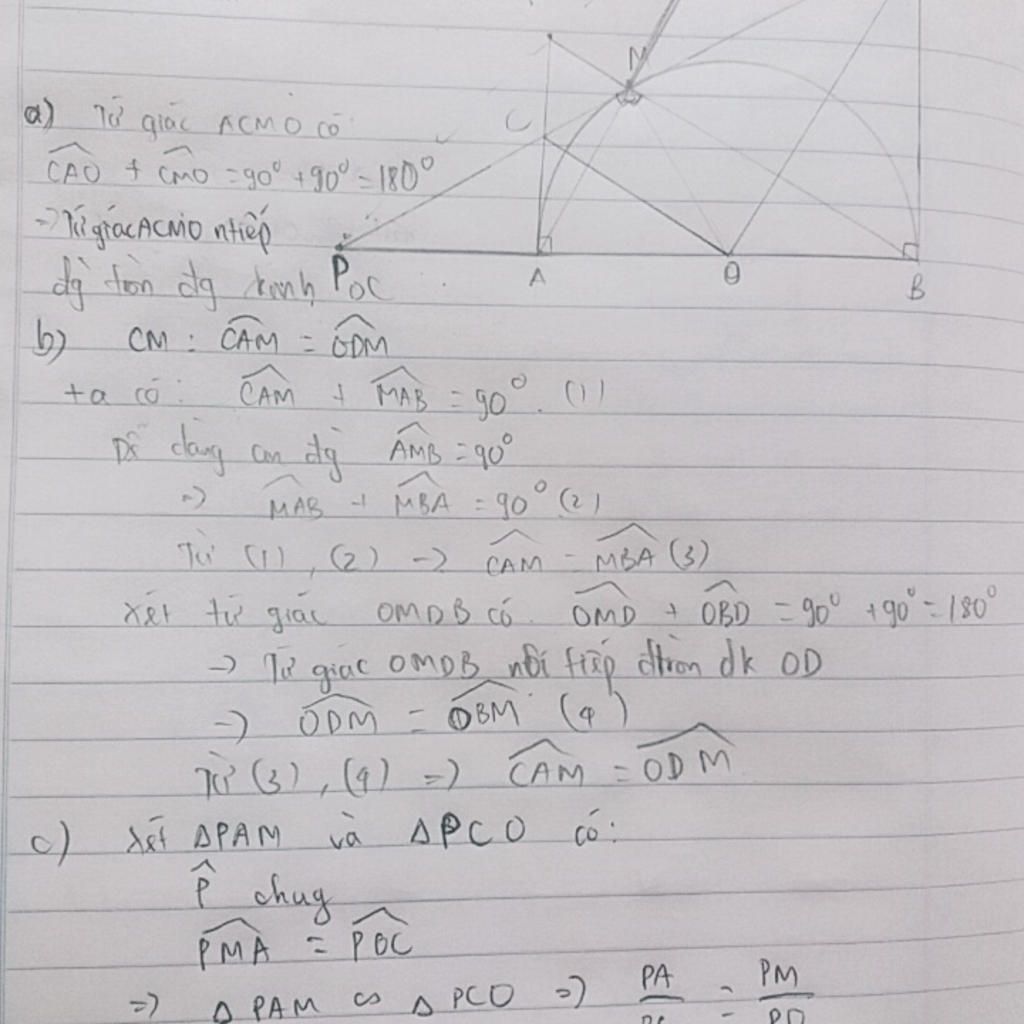 M
C
P
A
O
B
a) Tứ giác ACMO có
∠CAO + ∠CMO = 90° + 90° = 180°
=> Tứ giác ACMO ntiếp
đg tròn đg kính OC
b) CM : ∠CAM = ∠ODM
ta có : ∠CAM + ∠MAB = 90°. (1)
Dễ dàng cm đg ∠AMB = 90°
=> ∠MAB + ∠MBA = 90° (2)
Từ (1), (2) => ∠CAM = ∠MBA (3)
Xét tứ giác OMDB có ∠OMD + ∠OBD = 90° + 90° = 180°
=> Tứ giác OMDB nội tiếp đtròn đk OD
=> ∠ODM = ∠OBM (4)
Từ (3), (4) => ∠CAM = ∠ODM
c) Xét ΔPAM và ΔPCO có:
∠P chug
∠PMA = ∠POC
=> ΔPAM ∽ ΔPCO => PA = PM